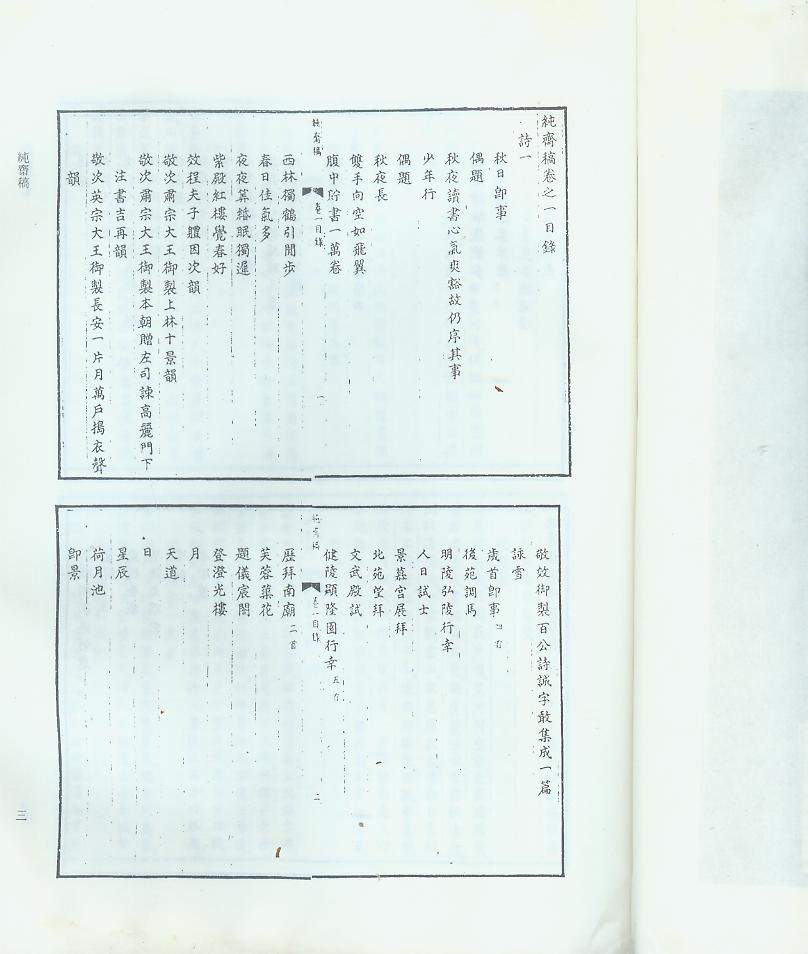 純齋稿卷之一目錄
詩一
秋日卽事
偶題
秋夜讀書心氣爽豁故仍序其事
少年行
偶題
秋夜長
雙手向空如飛翼
腹中貯書一萬卷
純齋稿
卷一目錄
一
西林獨鶴引閒步
春日佳氣多
夜夜算緡眠獨遲
紫殿紅樓覺春好
效程夫子體因次韻
敬次肅宗大王御製上林十景韻
敬次肅宗大王御製本朝贈左司諫高麗門下
注書吉再韻
敬次英宗大王御製長安一片月萬戶搗衣聲
韻
敬效御製百公詩誠字敢集成一篇
詠雪
歲首卽事 四首
後苑調馬
明陵弘陵行幸
人日試士
景慕宮展拜
北苑望拜
文武殿試
健陵顯隆園行幸 五首
純齋稿
卷一目錄
二
歷拜南廟 二首
芙蓉蘂花
題儀宸閤
登澄光樓
月
天道
日
星辰
荷月池
卽景
純齋稿
三